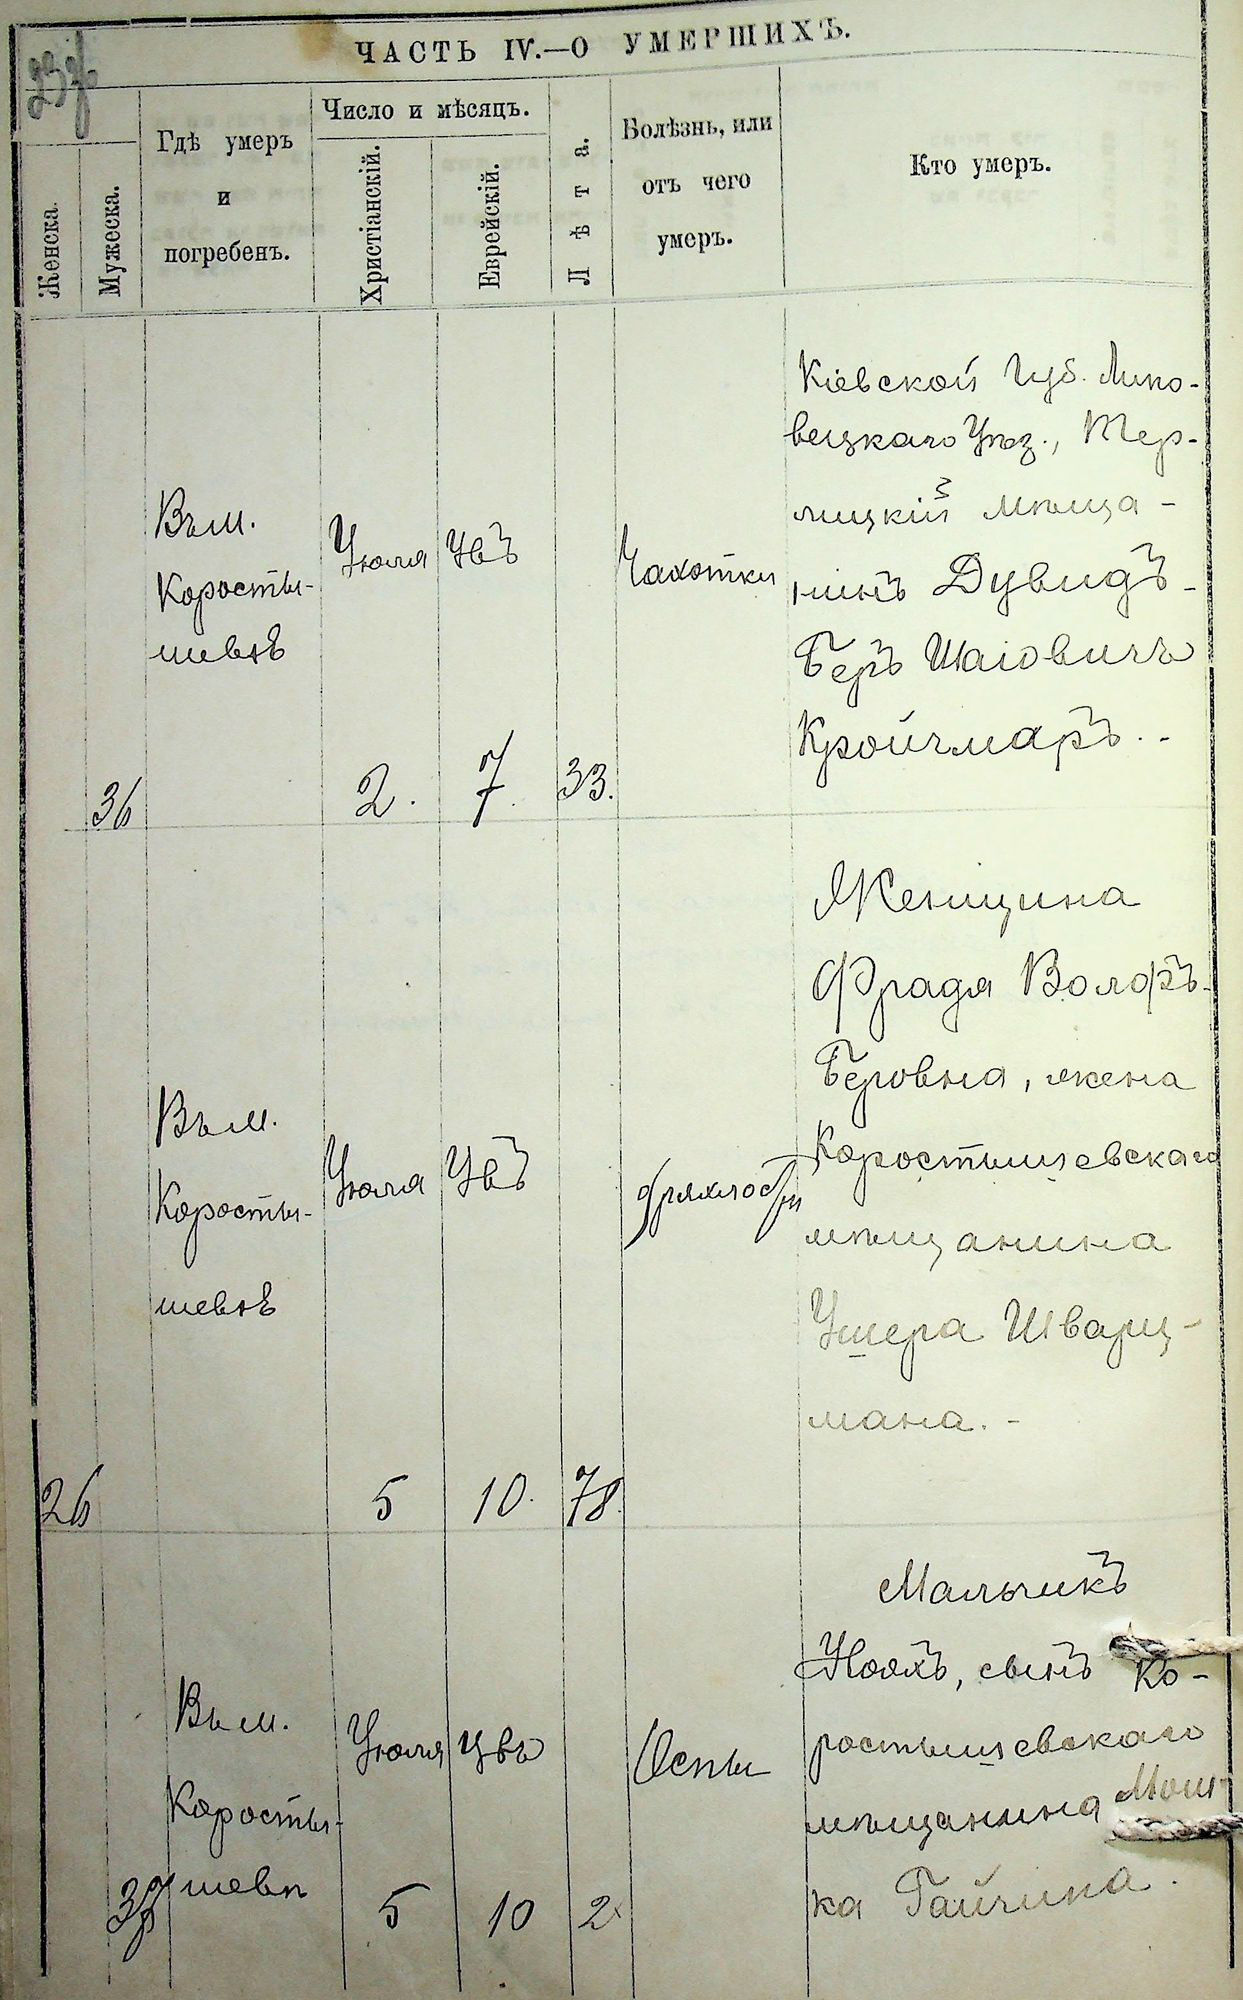 ЧАСТЬ IV.—О УМЕРШИХЪ.
Женска.
Мужеска.
Гдѣ умеръ
и
погребенъ.
Число и мѣсяцъ.
Христіанскій.
Еврейскій.
Лѣта.
Болѣзнь, или
отъ чего
умеръ.
Кто умеръ.
36
Въ м.
Коросты-
шевѣ
Іюля
2.
7.
33.
Чахотки
Кіевской Губ. Липо-
вецкаго Уѣз., Тер-
лицкій мѣща-
нинъ Дувидъ-
Беръ Шаіовичъ
Кройчмаръ.-
26
Въ м.
Коросты-
шевѣ
Іюля
5
10.
78.
дряхлости
Женщина
Фрадя Волфъ-
Беровна, жена
Коростышевскаго
мѣщанина
Ушера Шварц-
мана.-
37
Въ м.
Коросты-
шевѣ
Іюля
5
10
2
Оспы
Мальчикъ
Ноахъ, сынъ Ко-
ростышевскаго
мѣщанина Мош-
ка Гайчина.